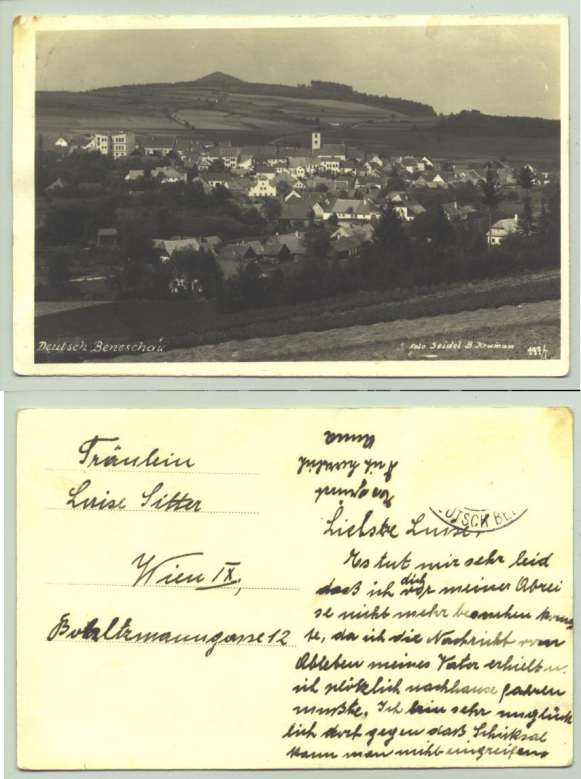 Deutsch Beneschau
Foto Seidel B. Krumau
Fräulein
Luise Sitter
Wien IX,
Boltzmanngasse 12
UTSCH BE
Liebste Luise!
Es tut mir sehr leid
daß ich dich vor meiner Abrei
se nicht mehr besuchen konn
te, da ich die Nachricht vom
Ableben meines Vater erhielt u.
ich plötzlich nachhause fahren
mußte. Ich bin sehr unglück
lich dort gegen daß Schicksal
kann man nicht eingreifen
Anna